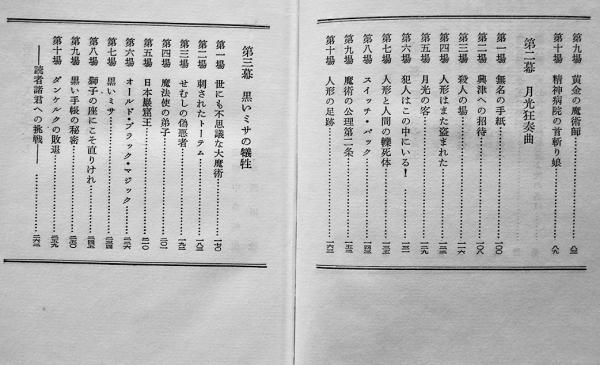 第九場 黄金の魔術師
第十場 精神病院の首斬り娘…………八九
第二幕 月光狂奏曲
第一場 無名の手紙…………一〇〇
第二場 興津への招待…………一〇八
第三場 殺人の場…………一一六
第四場 人形はまた盗まれた…………一二三
第五場 月光の客…………一二九
第六場 犯人はこの中にいる!
第七場 人形と人間の轢死体
第八場 スイッチ・バック
第九場 魔術の公理第二条
第十場 人形の足跡
第三幕 黒いミサの犠牲
第一場 世にも不思議な大魔術
第二場 刺されたトーテム
第三場 せむしの偽悪者
第四場 魔法使の弟子…………二〇一
第五場 日本巌窟王…………二一〇
第六場 オールド・ブラック・マジック
第七場 黒いミサ
第八場 獅子の座にこそ直りけれ
第九場 黒い手帳の秘密
第十場 ダンケルクの敗退
――読者諸君への挑戦――